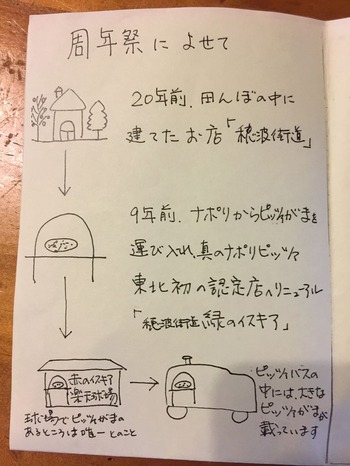 周年祭によせて
20年前、田んぼの中に
建てたお店「穂波街道」
9年前、ナポリからピッツァがまを
運び入れ、真のナポリピッツァ
東北初の認定店へリニュアル
「穂波街道 緑のイスキア」
赤のイスキア
楽天球場
球場でピッツァがまの
あるところは唯一とのこと
ピッツァバスの
中には、大きな
ピッツァがまが
載っています